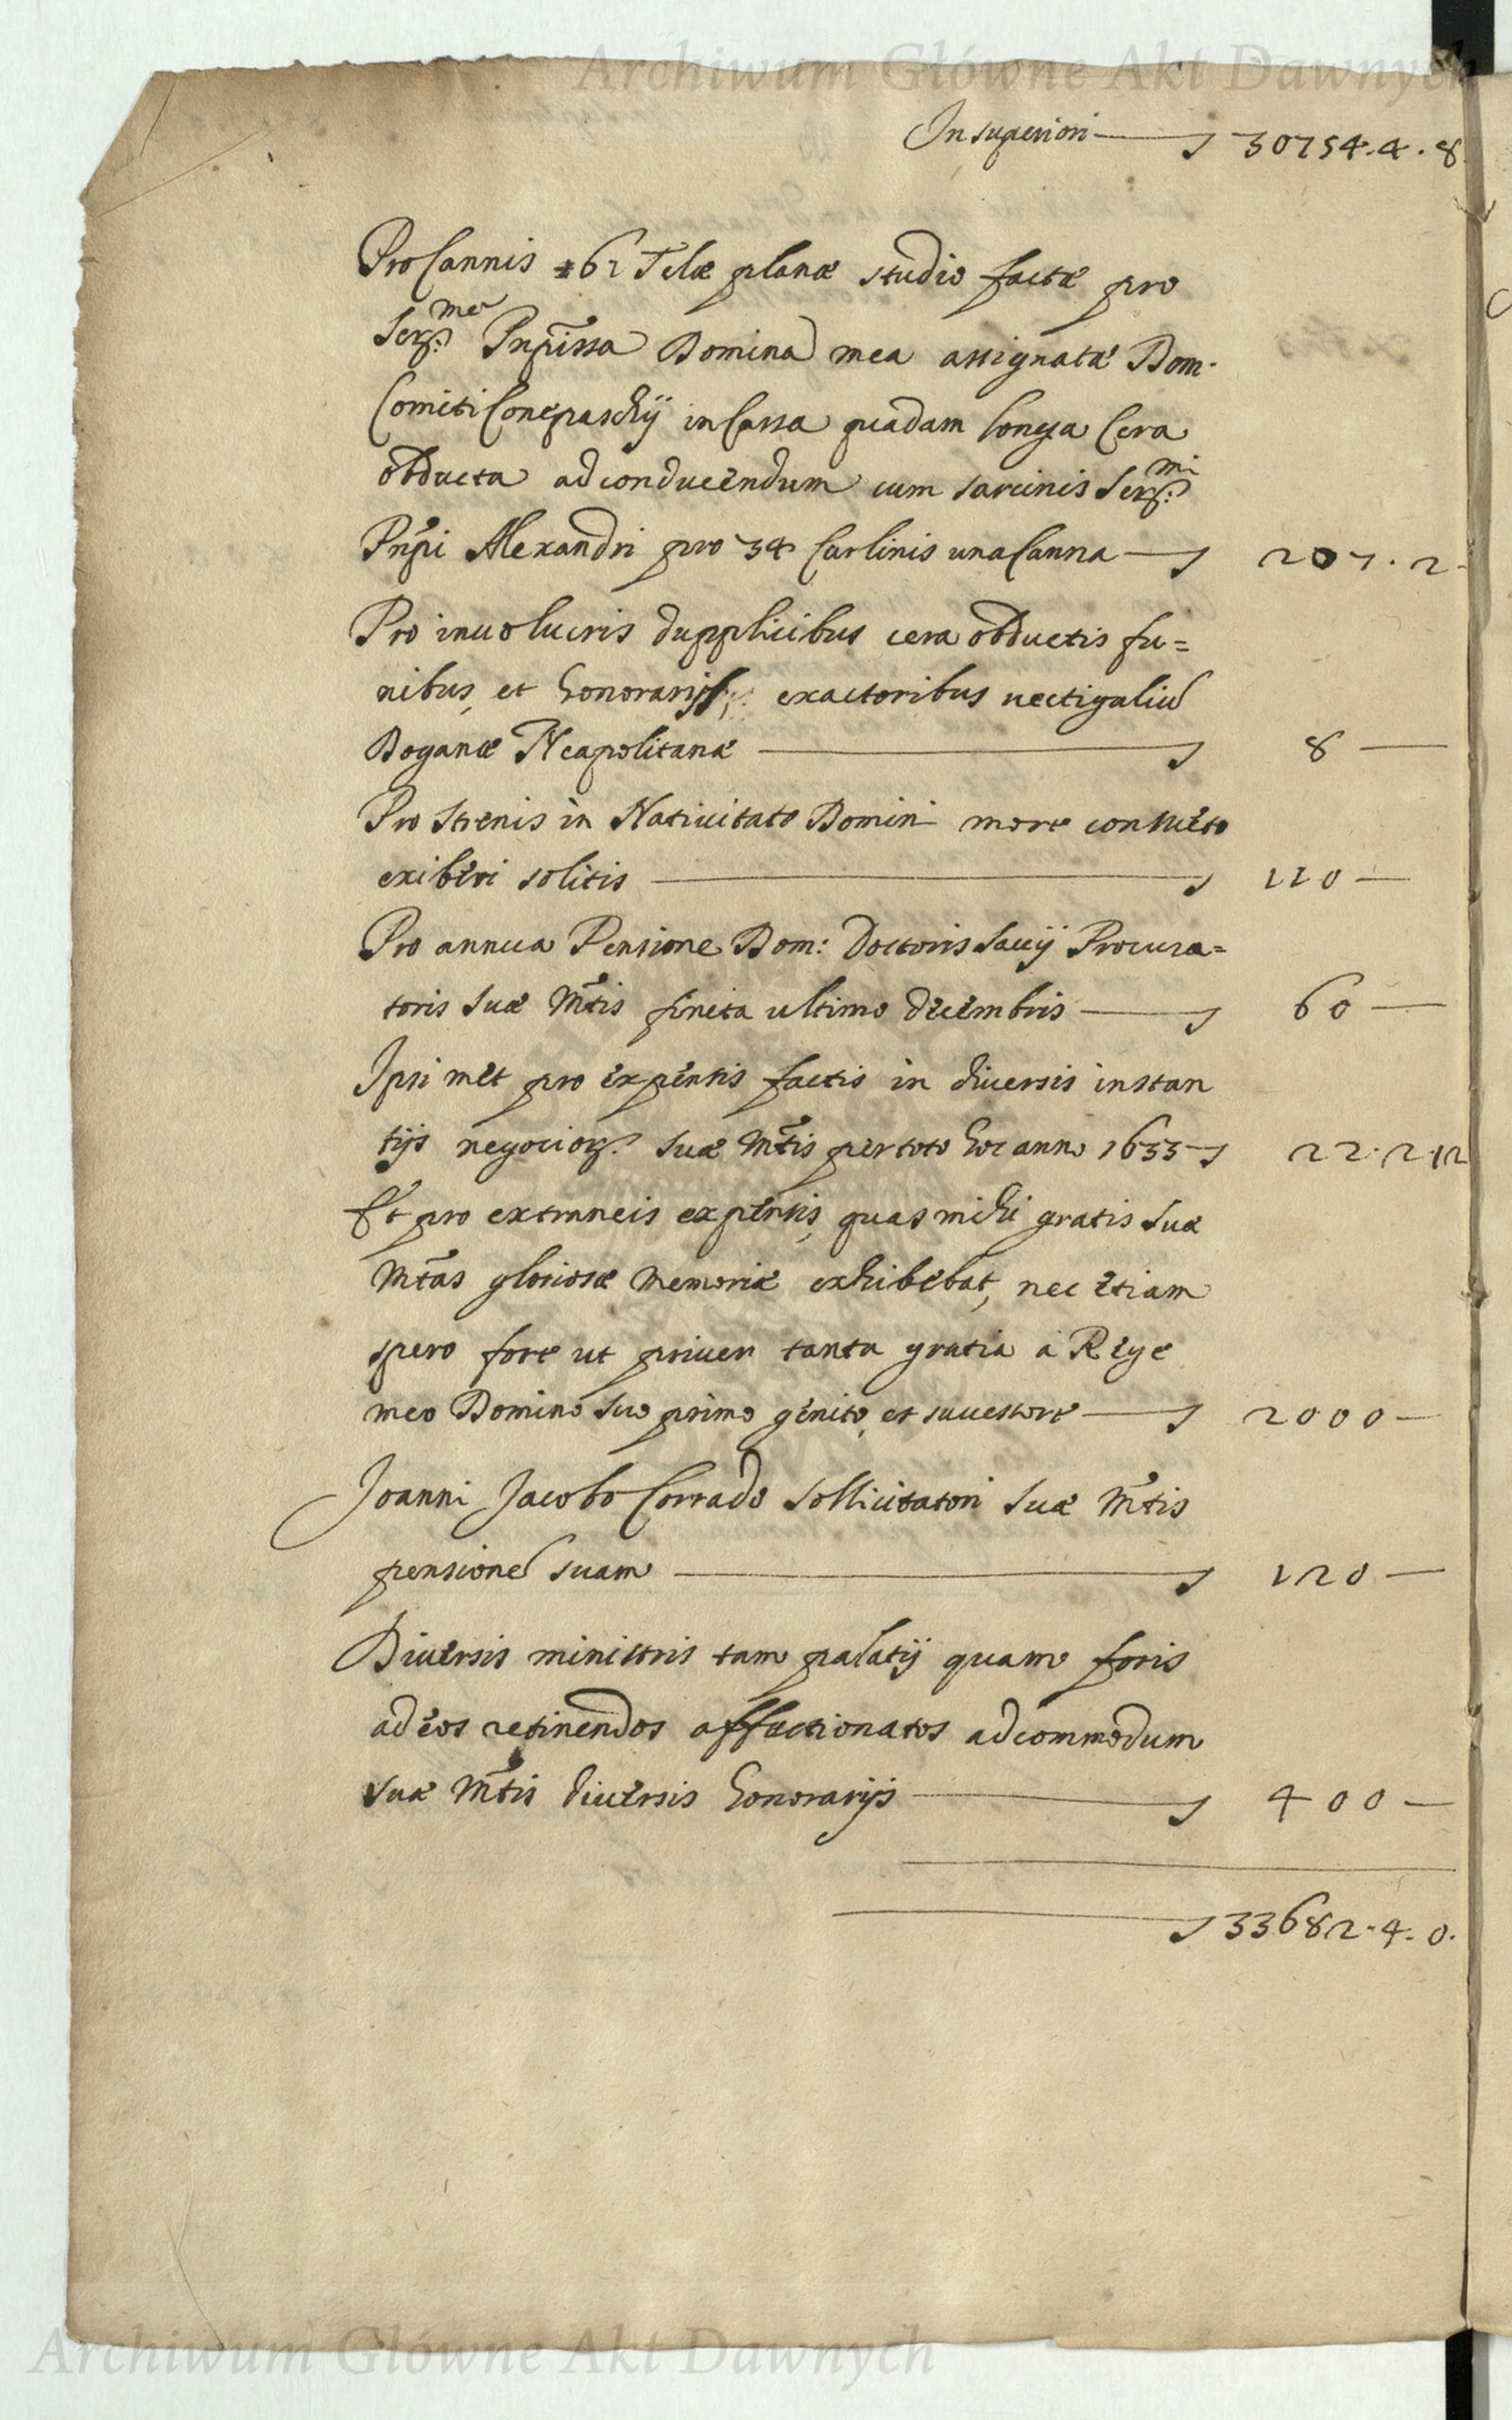 Archiwum Główne Akt Dawnych
In superiori 30754.4.8
Pro Cannis 61 Telæ planæ studio factæ pro
Ser.me Pñpissa Domina mea assignatæ Dom.
Comiti in Cassa quadam longa Cera
obducta ad conducendum cum sarcinis Ser.mi
Pñpi Alexandri pro 34 Carlinis una Canna 207.2
Pro inuolucris dupplicibus cera obductis fu=
nibus, et honorarijs, exactoribus uectigaliũ
Doganæ Neapolitanæ 8
Pro Strenis in Natiuitate Domini more consueto
exiberi solitis 110
Pro annua Pensione Dom: Doctoris Sauij Procura=
toris Suæ Mtis finita ultimo Decembris 60
Ipsi met pro expensis factis in diuersis instan
tijs negocior. Suæ Mtis per toto hoc anno 1633 22.2.12
Et pro extraneis expensis, quas mihi gratis Sua
Mtas gloriosæ memoriæ exhibebat, nec etiam
spero fore ut priuer tanta gratia à Rege
meo Domino suo primo genito, et successore 2000
Joanni Jacobo Corrado Sollicitatori Suæ Mtis
pensionẽ suam 120
Diuersis ministris tam palatij quam foris
ad eos retinendos affectionatos ad commodum
Suæ Mtis diuersis honorarijs 400
33682.4.0.
Archiwum Główne Akt Dawnych